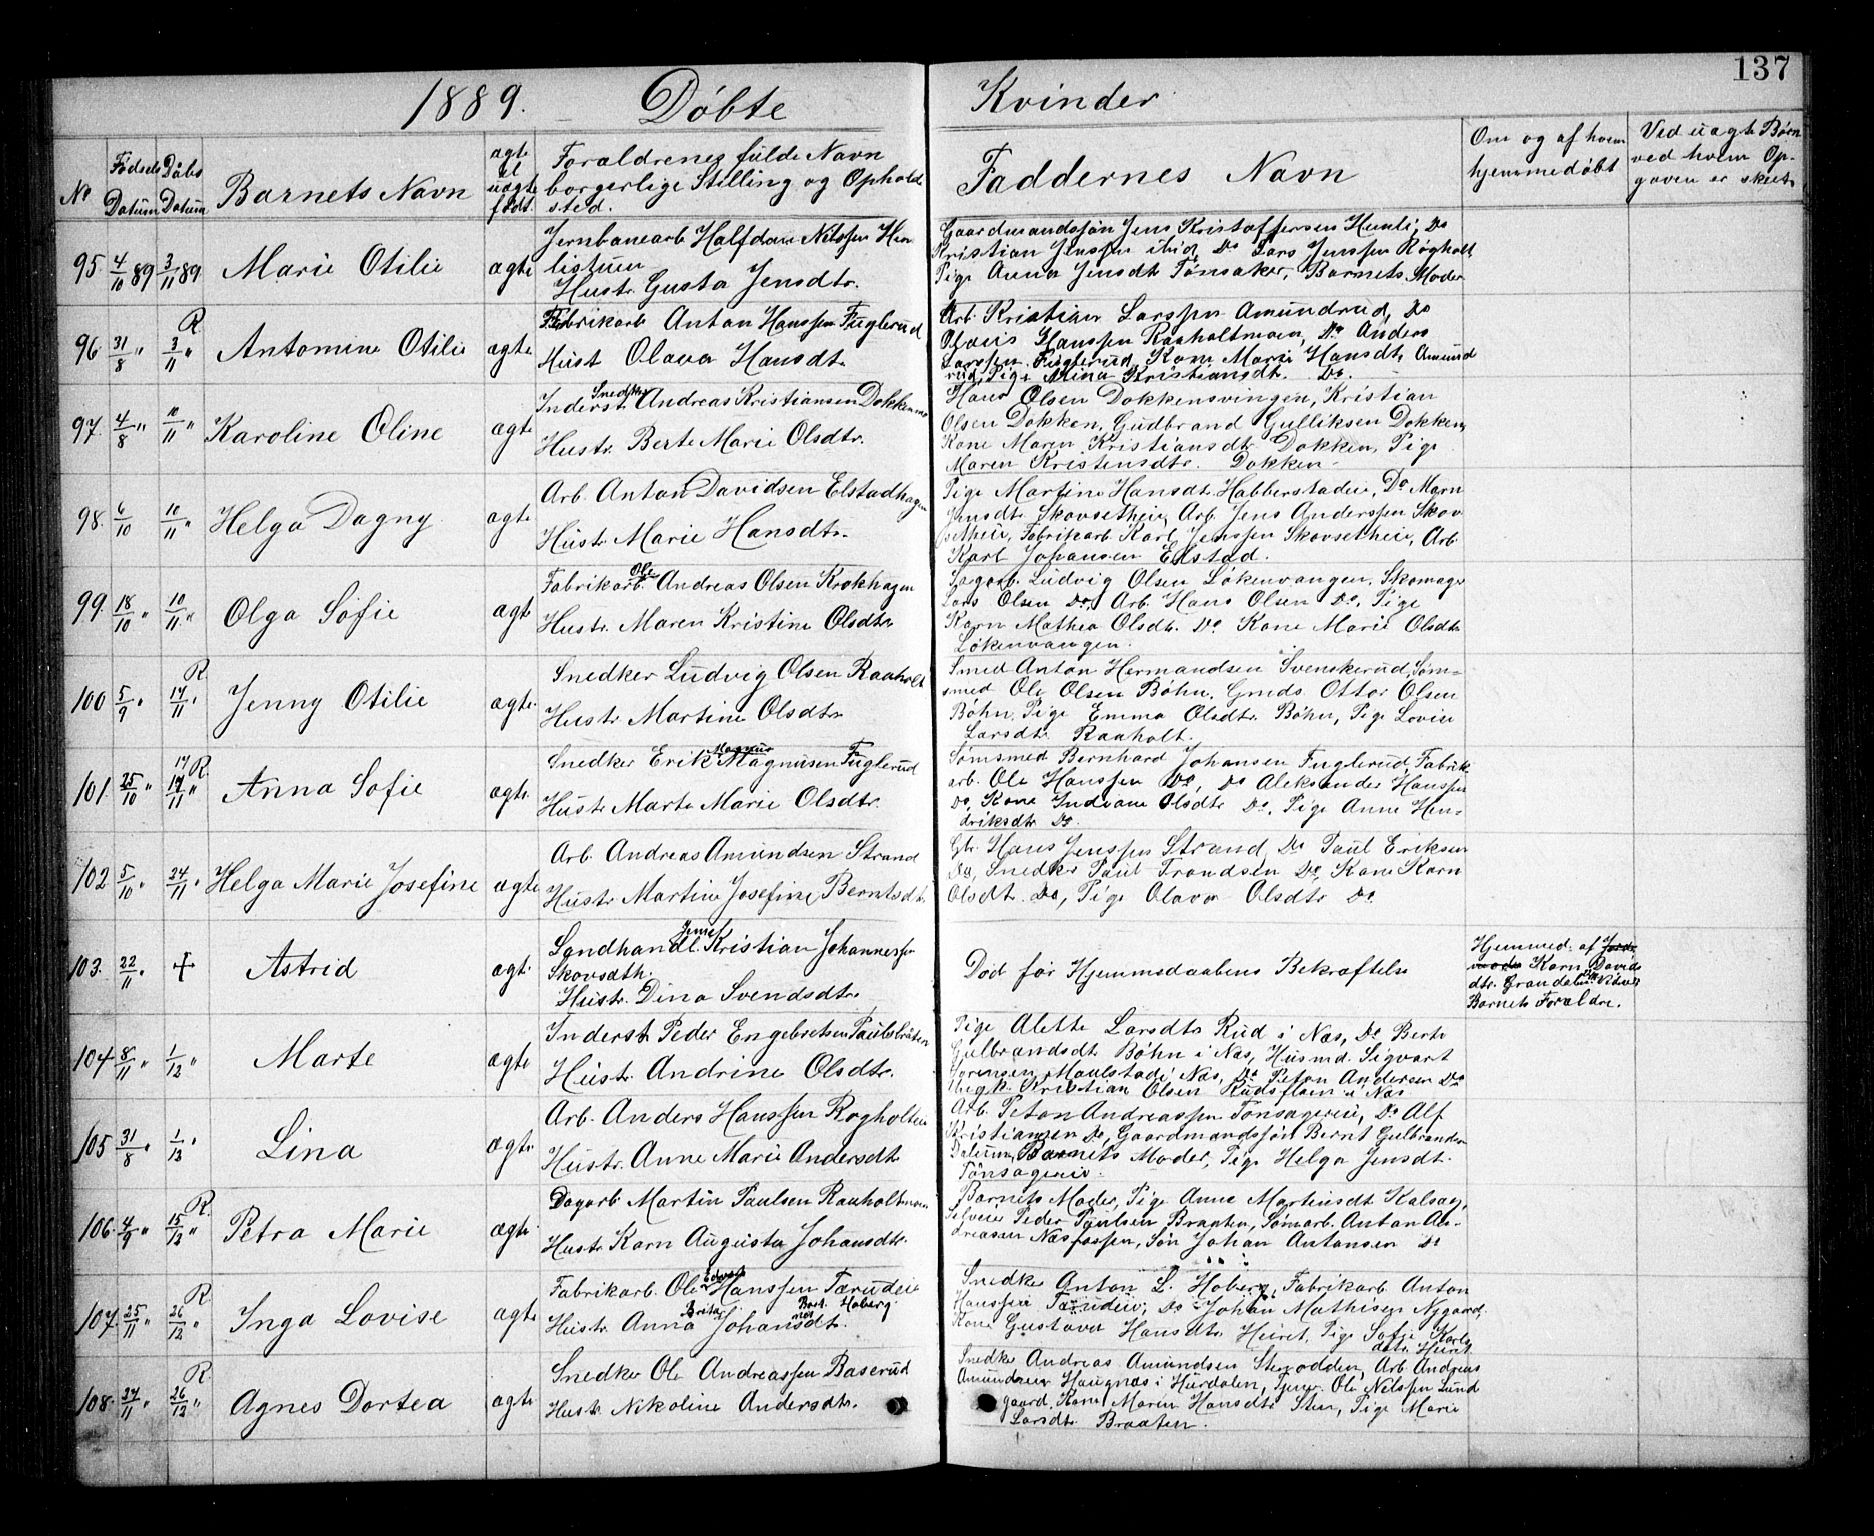 137
1889. Døbte Kvinder
No
Fødsels Datum
Dåbs Datum
Barnets Navn
ægte el. uægte født.
Forældrenes fulde Navn
borgerlige Stilling og Ophold
sted.
Faddernes Navn
Om og af hvem
hjemmedøbt
Ved uægte Børn
ved hvem Op-
gaven er skeet
95 4/10 89 3/11 89 Marie Otilie ægte
Jernbanearb Halfdan Nilssen Hen
listuen
Hustr. Gusta Jensdtr.
Gaardmandssøn Jens Kristoffersen Hunli, Do
Kristian Jenssen ibid, Do Lars Jenssen Røgholt
Pige Anna Jensdt. Tønsaker, Barnets Moder
96 31/8 " 3/11 " R Antomine Otilie ægte
Fabrikarb Anton Hanssen Fuglerud
Hust Olava Hansdt.
Arb. Kristian Larssen Amundrud, Do
Olaus Hanssen Raaholtmoen, Do Anders
Larssen Fuglerud, Kone Marie Hansdt. Amund
rud, Pige Mina Kristiansdt. Do.
97. 4/8 " 10/11 " Karoline Oline ægte
Snedker
Inderst. Andreas Kristiansen Dokken
Hustr. Berte Marie Olsdtr.
Hans Olsen Dokkensvingen, Kristian
Olsen Dokken, Gudbrand Gulliksen Dokken,
Kone Maren Kristiansdt. Dokken, Pige
Maren Kristensdtr. Dokken.
98. 6/10 10/11 " Helga Dagny. ægte
Arb. Anton Davidsen Elstadhagen
Hustr. Marie Hansdtr.
Pige Martine Hansdt. Habberstadeie, Do Marn
Jensdt. Skovsetheie, Arb. Jens Anderssen Skov
setheie, Fabrikarb Karl Jenssen Skovsetheie, Arb.
Karl Johansen Elstad.
99. 18/10 " 10/11 " Olga Sofie ægte
Ole
Fabrikarb. Andreas Olsen Krokhagen
Hustr. Maren Kristine Olsdtr.
Sagarb. Ludvig Olsen Løkenvangen, Skomager
Lars Olsen Do, Arb. Hans Olsen Do, Pige
Karn Mathea Olsdt. Do Kone Marie Olsdt.
Løkenvangen.
100 5/9 " 17/11 " R Jenny Otilie ægte.
Snedker Ludvig Olsen Raaholt
Hustr. Martine Olsdtr.
Smed Anton Hermandsen Svenskerud, Søm-
smed Ole Olsen Bøhn, Gmds. Ottar Olsen
Bøhn, Pige Emma Olsdtr. Bøhn, Pige Lovise
Larsdt. Raaholt.
101. 25/10 " 17 17/11 " R. Anna Sofie ægte.
Magnus
Snedker Erik Magnusen Fuglerud
Hustr. Marte Marie Olsdtr.
Sømsmed Bernhard Johansen Fuglerud, Fabrik
arb. Ole Hanssen Do, Do Aleksander Hanssen
Do, Kone Indiane Olsdtr Do, Pige Anne Hen-
driksdtr. Do.
102 5/10 " 24/11 " Helga Marie Josefine ægte
Arb. Andreas Amundsen Strand
Hustr. Martine Josefine Berntsdt.
Gbr. Hans Jenssen Strand, Do Paul Eriksen
Do, Snedker Paul Frandsen Do, Kone Karn
Olsdt. Do, Pige Olava Olsdtr Do
103. 22/11 " + Astrid ægt.
Jensef
Landhandl. Kristian Johannessen
Skovsdth.
Hustr. Dina Svendsdtr.
Død før Hjemmedaabens Bekræftelse
Hjemmed. af Jorde
moder Karn Davids
dtr. Grandalen
Barnets Forældre.
104 8/11 " 1/12 " Marte ægte
Inderst Peder Engebretsen Paulsbråten
Hustr. Andrine Olsdtr.
Pige Alette Larsdtr Rud i Næs, Do Berte
Gulbrandsdt. Bøhn i Næs, Husmd. Sigvart
Sørensen Maulstad i Næs, Do Petan Andersen Do
Ungk. Kristian Olsen Rudsfloen i Næs
105 31/8 " 1/12 " Lina ægte
Arb. Anders Hanssen Rogholteie
Hustr. Anne Marie Andersdt.
Arb. Petan Andreassen Tønsagereie, Do Alf
Kristiansen Do, Gaardmandssøn Bernt Gulbrandsen
Dalum, Barnets Moder, Pige Helga Jensdt.
Tønsagereie.
106. 4/9 " 15/12 " R. Petra Marie ægte
Dagarb. Martin Paulsen Raaholtmoen
Hustr. Karn Augusta Johansdtr.
Barnets Moder, Pige Anne Martinsdt. Kalsag,
Selveier Peder Paulsen Braaten, Sømarb. Anton An-
dreasen Næsfossen, Søn Johan Antonsen Do
107. 25/11 " 26/12 " R. Inga Lovise ægte
Edvard
Fabrikarb. Ole Hanssen Tærudeie
Hustr. Anna Johansdtr. Hoberg.
Snedker Anton L. Hoberg, Fabrikarb. Anton
Hanssen Tærudeie, Do Johan Mathisen Nygaard,
Kone Gustava Hansdtr. Heiret, Pige Sofie Karls
datr. Heiret
108. 27/11 " 26/12 " R. Agnes Dortea ægte
Snedker Ole Andreassen Baserud
Hustr. Nikoline Andersdtr.
Snedker Andreas Amundsen Stenodden, Arb. Andreas
Amundsen Haugnæs i Hurdalen, Ole Nelssen Lund
gaard, Kone Maren Hansdtr Steer, Pige Marie
Larsdt. Braaten.